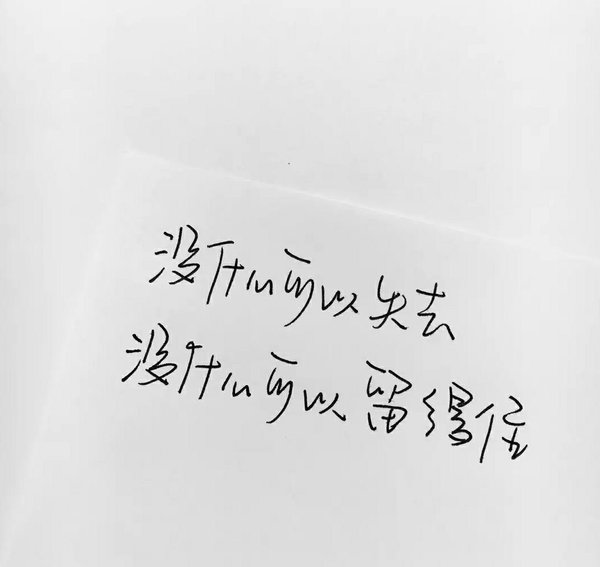 没什么可以失去
没什么可以留得住